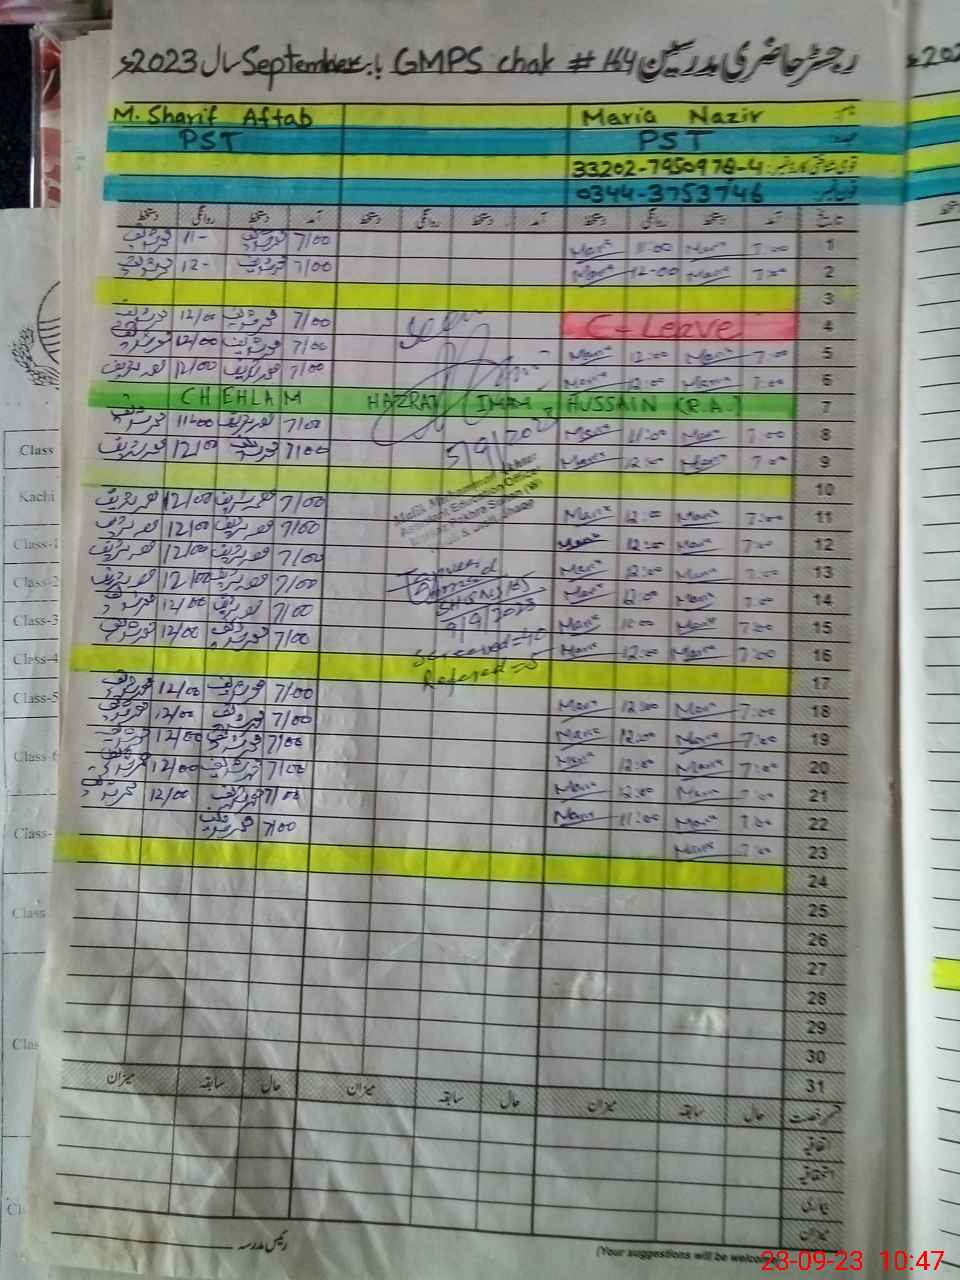 رجسٹر حاضری مدرسین GMPS chak # 164 بابت September سال 2023ء
M. Sharif Aftab Maria Nazir
PST PST
33202-7950978-4 قومی شناختی کارڈ نمبر:
0344-3753746 فون نمبر:
تاریخ آمد دستخط روانگی دستخط آمد دستخط روانگی دستخط آمد دستخط روانگی دستخط
1 7:00 Maria 11:00 Maria 7/00 محمد شریف 11- محمد شریف
2 7:00 Maria 12-00 Maria 7/00 محمد شریف 12- محمد شریف
3
4 C-Leave 7/00 محمد شریف 12/00 محمد شریف
5 7:00 Maria 12:00 Maria 7/00 محمد شریف 12/00 محمد شریف
6 7:00 Maria 12:00 Maria 7/00 محمد شریف 12/00 محمد شریف
7 CHEHLAM HAZRAT IMAM HUSSAIN (R.A.)
8 7:00 Maria 11:00 Maria 7/00 محمد شریف 11/00 محمد شریف
9 7:00 Maria 12:00 Maria 7/00 محمد شریف 12/00 محمد شریف
5/9/2023
10
11 7:00 Maria 12:00 Maria 7/00 محمد شریف 12/00 محمد شریف
12 7:00 Maria 12:00 Maria 7/00 محمد شریف 12/00 محمد شریف
13 7:00 Maria 12:00 Maria 7/00 محمد شریف 12/00 محمد شریف
14 7:00 Maria 12:00 Maria 7/00 محمد شریف 12/00 محمد شریف
15 7:00 Maria Maria 7/00 محمد شریف 12/00 محمد شریف
16 7:00 Maria 12:00 Maria 7/00 محمد شریف 12/00 محمد شریف
Tanveer
Ahmad
SH&NS
9/9/2023
Screened=40
Refered=5
17
18 7:00 Maria 12:00 Maria 7/00 محمد شریف 12/00 محمد شریف
19 7:00 Maria 12:00 Maria 7/00 محمد شریف 12/00 محمد شریف
20 7:00 Maria 12:00 Maria 7/00 محمد شریف 12/00 محمد شریف
21 7:00 Maria 12:00 Maria 7/00 محمد شریف 12/00 محمد شریف
22 7:00 Maria 11:00 Maria 7/00 محمد شریف 12/00 محمد شریف
23 7:00 Maria 7/00 محمد شریف
24
25
26
27
28
29
30
31
حال سابقہ میزان حال سابقہ میزان حال سابقہ میزان
قسم رخصت
اتفاقیہ
استحقاقیہ
بیماری
میزان
رئیس مدرسہ
(Your suggestions will be welcome
Class
Kachi
Class-1
Class-2
Class-3
Class-4
Class-5
Class-6
Class-
Class
Clas
Cl
23-09-23 10:47